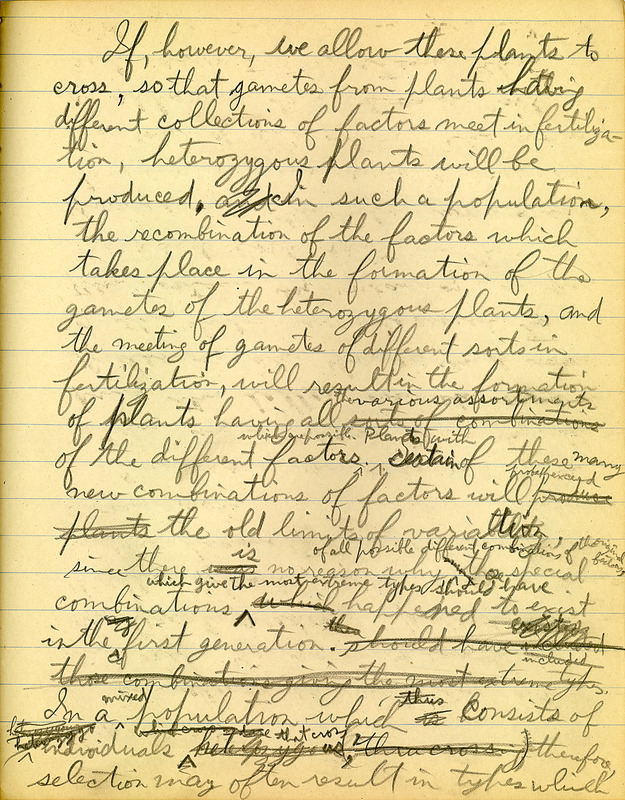 If, however, we allow these plants to
cross, so that gametes from plants having
different collections of factors meet in fertiliza-
tion, heterozygous plants will be
produced, and In such a population,
the recombination of the factors which
takes place in the formation of the
gametes of the heterozygous plants, and
the meeting of gametes of different sorts in
fertilization, will result in the formation
the various assortments
of plants having all sorts of combinations
which are possible. Plants with
of the different factors. certain of these many
new combinations of factors will produce
plants the old limits of variation,
is of all possible different combinations of the original factors
since there was no reason why the special
which give the most extreme types should have
combinations which happened to exist
in the first generation. should have included
included
those combinations giving the most extreme types.
mixed thus
In a population which is consists of
that cross
individuals heterozygous, thru cross therefore
selection may often result in types which